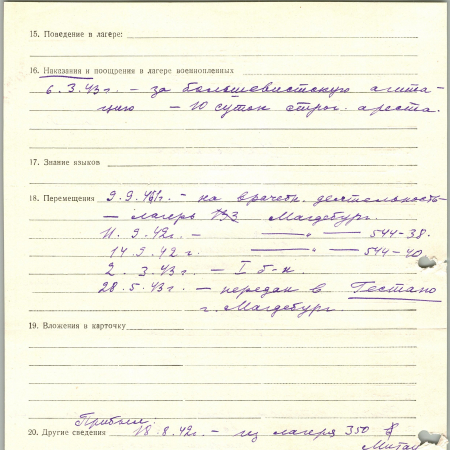 15. Поведение в лагере:
16. Наказания и поощрения в лагере военнопленных
6.3.43 г. – за большевистскую агита-
цию – 10 суток строг. ареста.
17. Знание языков
18. Перемещения 9.9.41 г. – на врачебн. деятельность
– лагерь 133 Магдебург.
11.9.42 г. – — " — 544-38.
14.9.42 г. — " — 544-40
2.3.43 г. – I б-н.
28.5.43 г. – передан в Гестапо
г. Магдебург
19. Вложения в карточку
Прибыл.
20. Другие сведения 18.8.42 г. – из лагеря 350
Митав